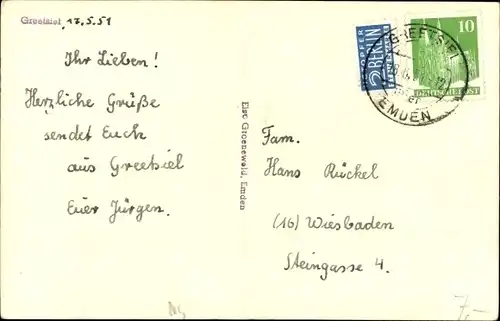 Greetsiel, 17.5.51
Ihr Lieben!
Herzliche Grüße
sendet Euch
aus Greetsiel
Euer Jürgen.
Else Groenewold, Emden
NOTOPFER
2 BERLIN
STEUERMARKE
10
GREETSIEL
EMDEN
Fam.
Hans Rückel
(16) Wiesbaden
Steingasse 4.
7,-